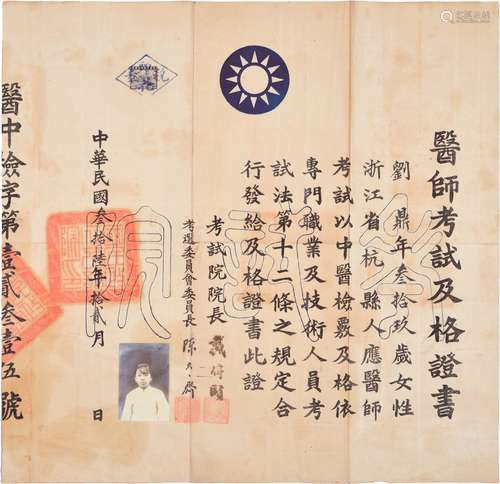 醫師考試及格證書
劉鼎年叁拾玖歲女性
浙江省杭縣人應醫師
考試以中醫檢覈及格依
專門職業及技術人員考
試法第十二條之規定合
行發給及格證書此證
考試院院長
戴傳賢
考選委員會委員長
陳大齊
中華民國叁拾陸年拾貳月 日
醫中檢字第壹貳叁壹伍號
考試院